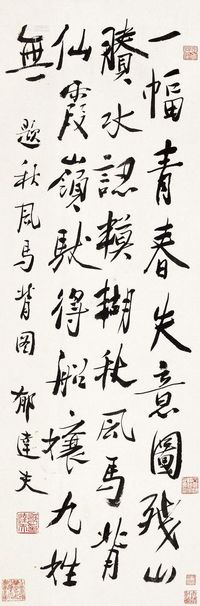 一幅青春失意圖殘山
賸水認模糊秋風馬背
仙霞嶺馱得船孃九姓
無
題秋風馬背图
郁達夫